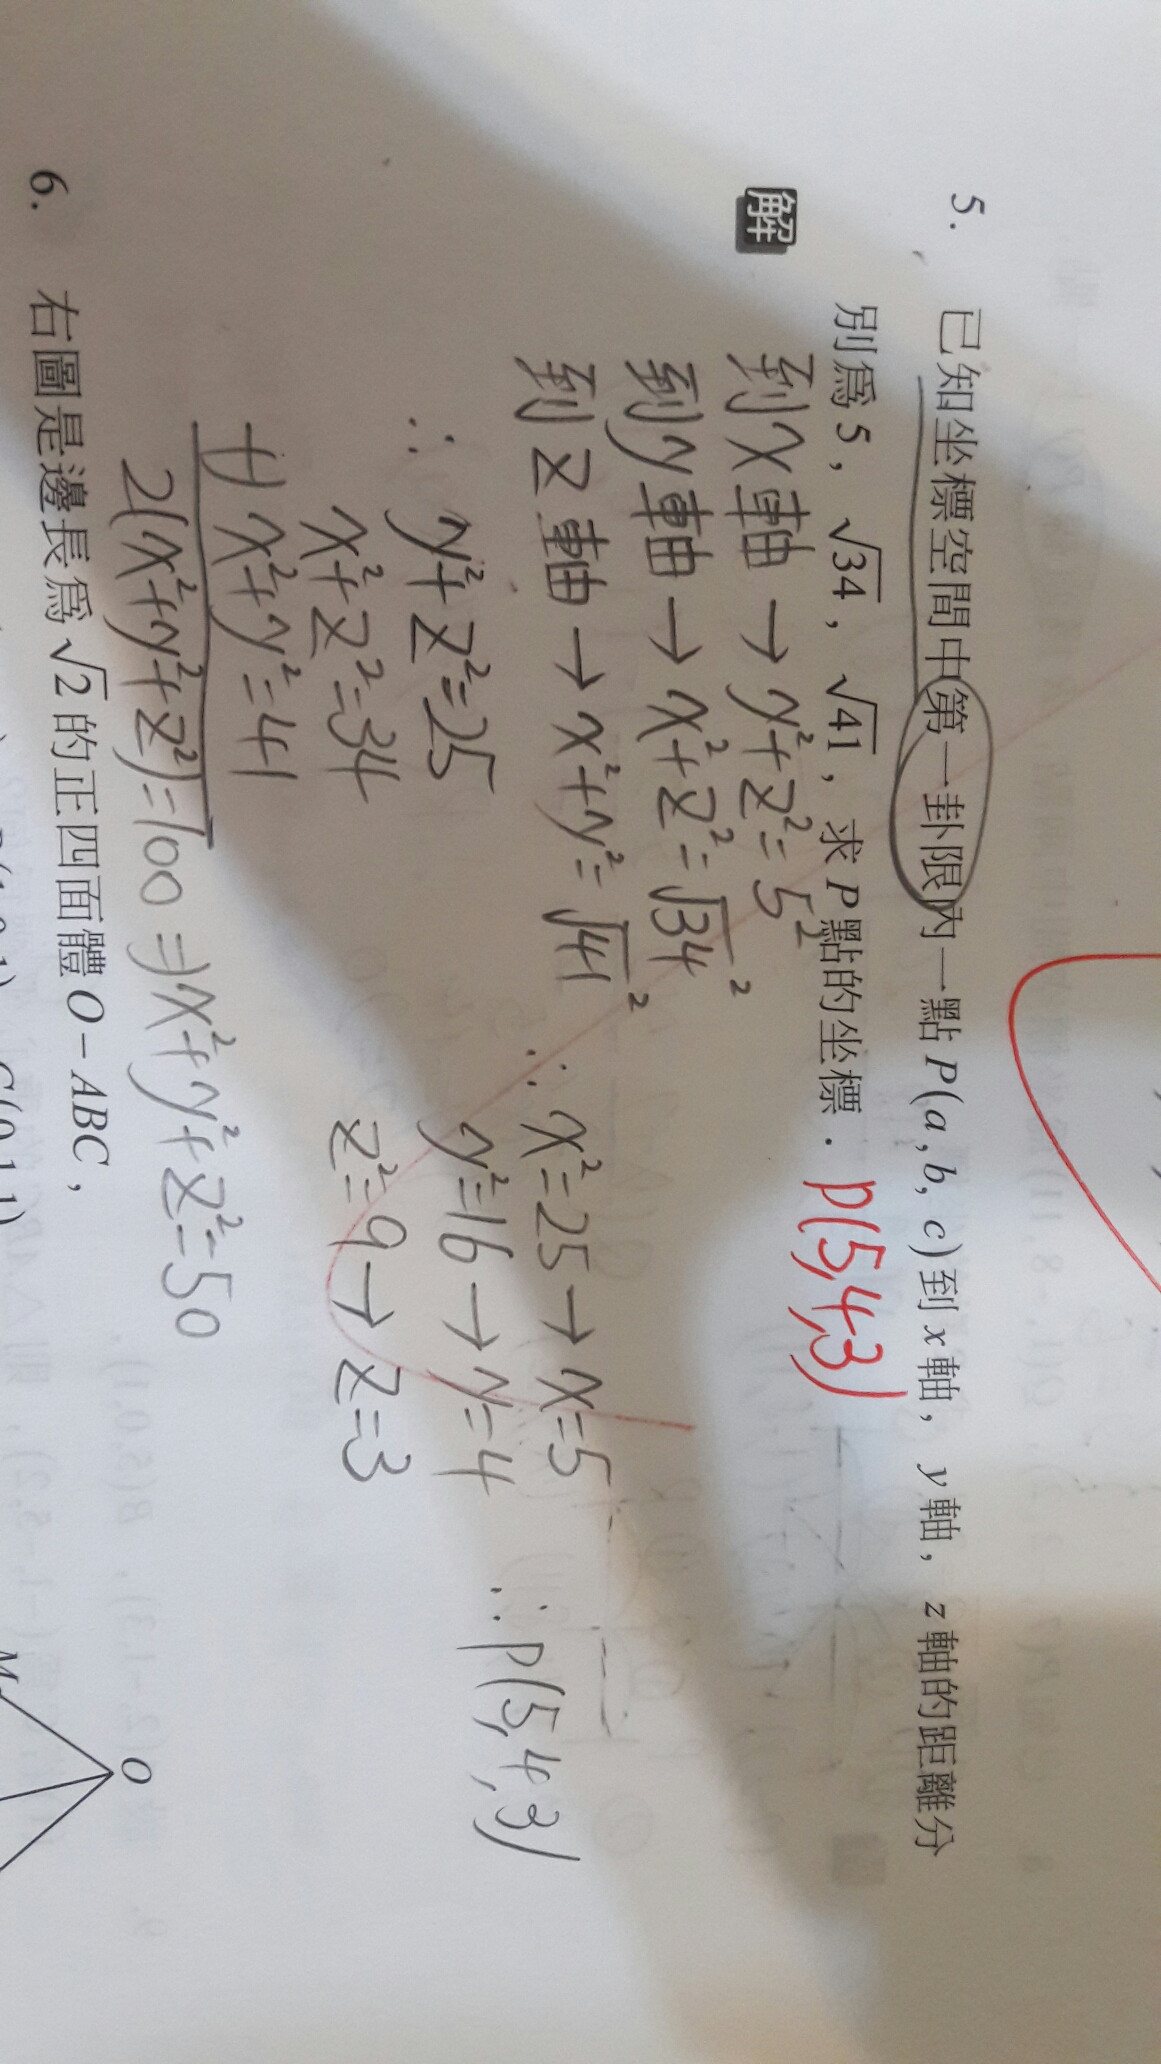 5. 已知坐標空間中第一卦限內一點 P(a, b, c)到 x 軸, y 軸, z 軸的距離分
別為 5, √34, √41, 求 P 點的坐標. P(5,4,3)
解
到 x 軸 → y²+z²=5²
到 y 軸 → x²+z²=√34²
到 z 軸 → x²+y²=√41²
∴ y²+z²=25
x²+z²=34
+) x²+y²=41
2(x²+y²+z²)=100 ⇒ x²+y²+z²=50
∴ x²=25 → x=5
y²=16 → y=4
z²=9 → z=3
∴ P(5,4,3)
6. 右圖是邊長為 √2 的正四面體 O-ABC,
O
M